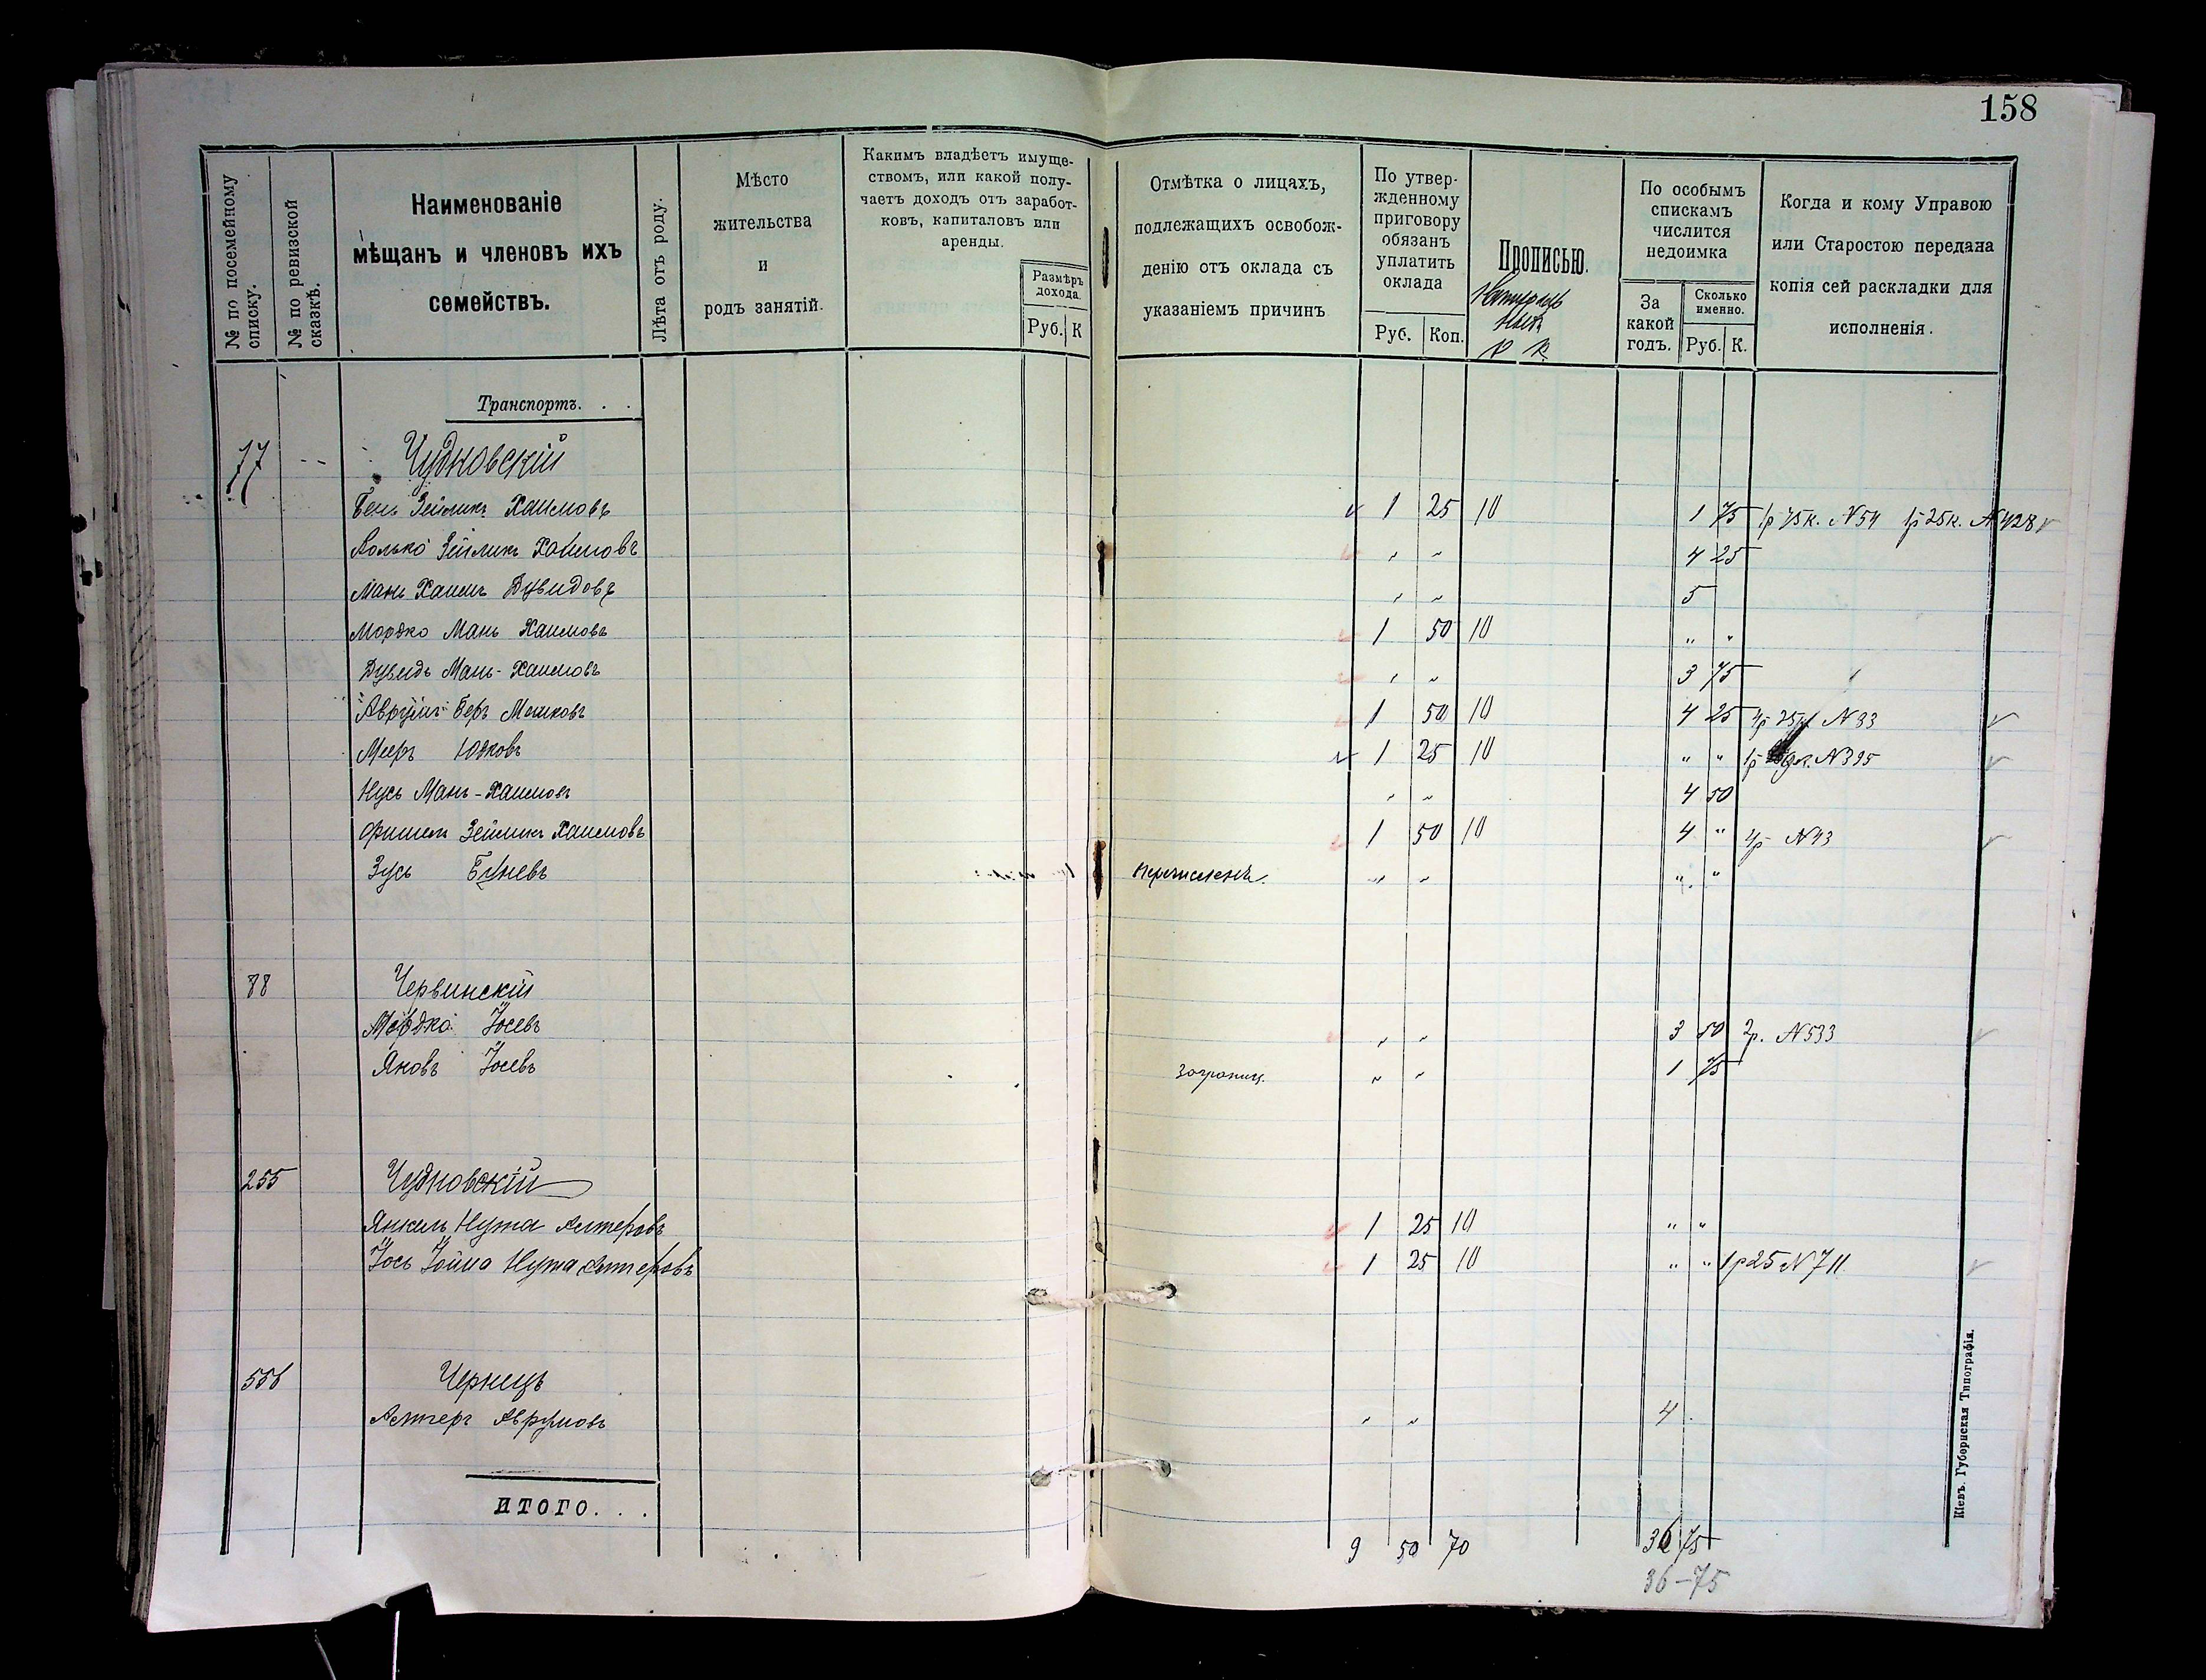 158
№ по посемейному списку.
№ по ревизской сказкѣ.
Наименованіе
мѣщанъ и членовъ ихъ
семействъ.
Лѣта отъ роду.
Мѣсто
жительства
и
родъ занятій.
Какимъ владѣетъ имуще-
ствомъ, или какой полу-
чаетъ доходъ отъ заработ-
ковъ, капиталовъ или
аренды.
Размѣръ
дохода.
Руб. К
Отмѣтка о лицахъ,
подлежащихъ освобож-
денію отъ оклада съ
указаніемъ причинъ
По утвер-
жденному
приговору
обязанъ
уплатить
оклада
Руб. Коп.
Прописью.
Р К.
По особымъ
спискамъ
числится
недоимка
За
какой
годъ.
Сколько
именно.
Руб. К.
Когда и кому Управою
или Старостою передана
копія сей раскладки для
исполненія.
Транспортъ. . .
77 Чудновскій
Бень Зейликъ Хаимовъ 1 25 10 1 75 1р 75к. №54 1р 25к. №428
Волько Зейликъ Хаимовъ " " 4 25
Мань Хаимъ Дувидовъ " " 5
Мордко Мань Хаимовъ 1 50 10 " "
Дувидъ Мань-Хаимовъ " " 3 75
Аврумъ Беръ Мошковъ 1 50 10 4 25 4р 25к №33
Мееръ Юдковъ 1 25 10 " " 1р №395
Нусь Мань-Хаимовъ " " 4 50
Фишель Зейликъ Хаимовъ 1 50 10 4 " 4р №43
Зусь Буневъ перечисленъ. " " " "
88 Червинскій
Мордко Іосевъ " " 3 50 2р. №533
Яковъ Іосевъ заграниц. " " 1 75
255 Чудновскій
Янкель Нута Алтеровъ 1 25 10 " "
Іось Іойна Нута Алтеровъ 1 25 10 " " 1р25 №711
556 Чернецъ
Алтеръ Аврумовъ " " 4
ИТОГО. . .
9 50 70 36 75
36-75
Кіевъ. Губернская Типографія.